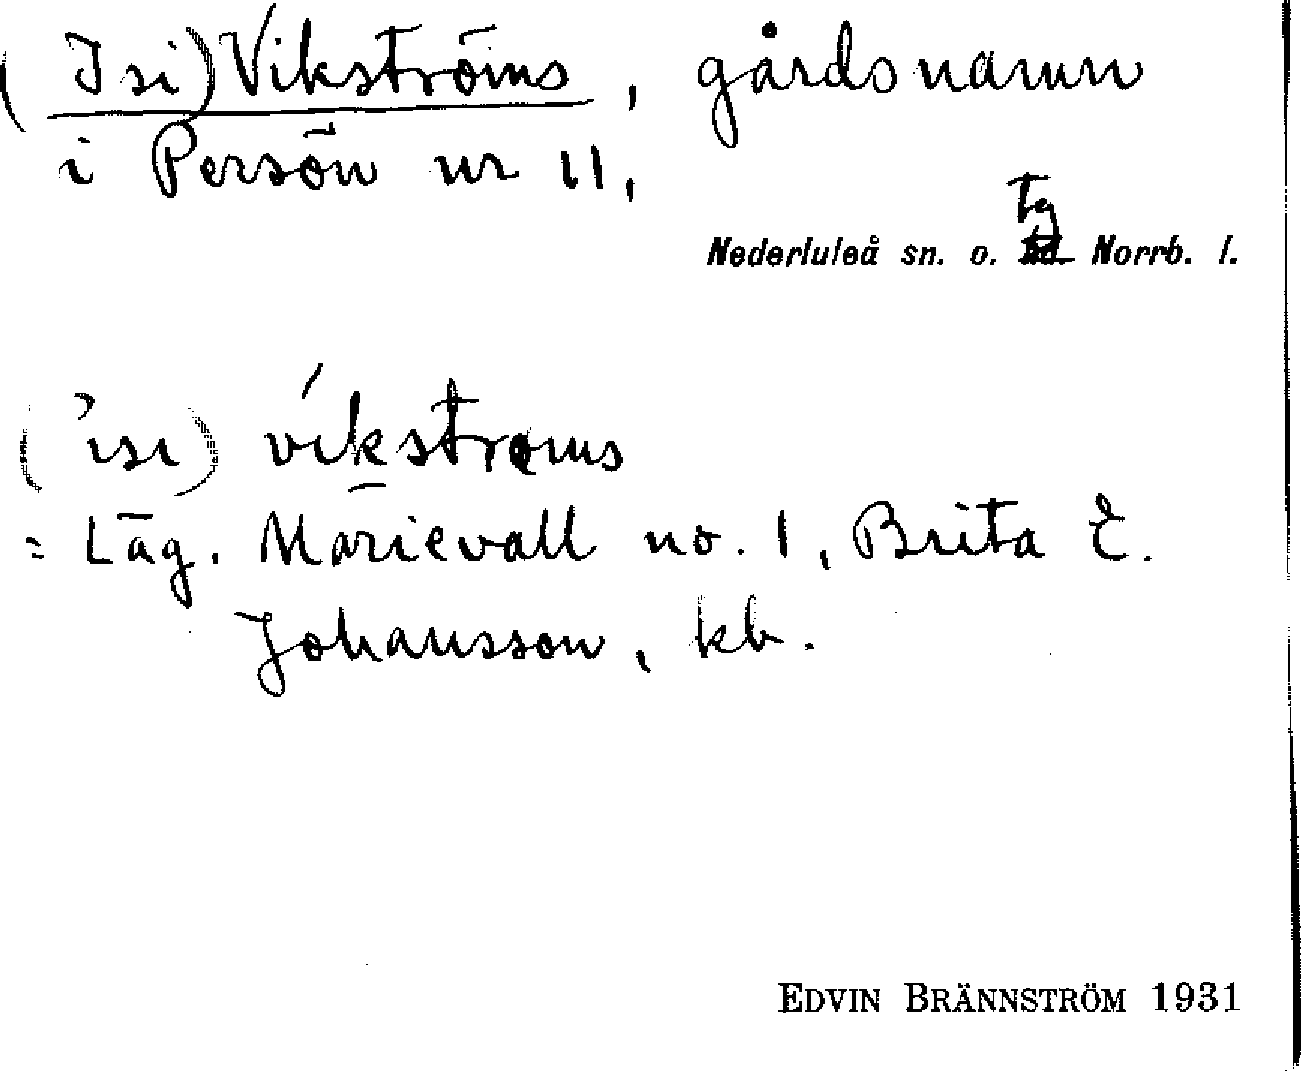 (Isi) Vikströms, gårdsnamn
i Persön nr 11,
tg
Nederluleå sn. o. Norrb. l.
('isi) víkstroms
= Läg. Marievall no. 1, Brita E.
Johansson, kb.
EDVIN BRÄNNSTRÖM 1931